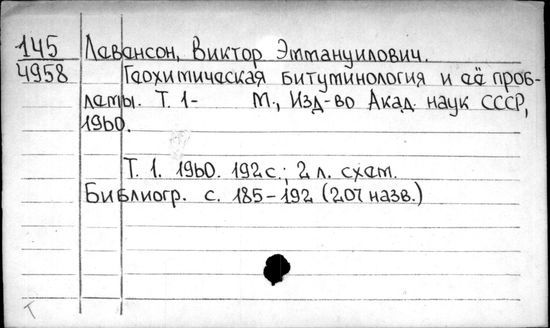 145 Левенсон, Виктор Эммануилович.
4958 Геохимическая битуминология и её проб-
лемы. Т. 1- М., Изд-во Акад. наук СССР,
1960.
Т. 1. 1960. 192 с.; 2 л. схем.
Библиогр. с. 185-192 (207 назв.)
Т